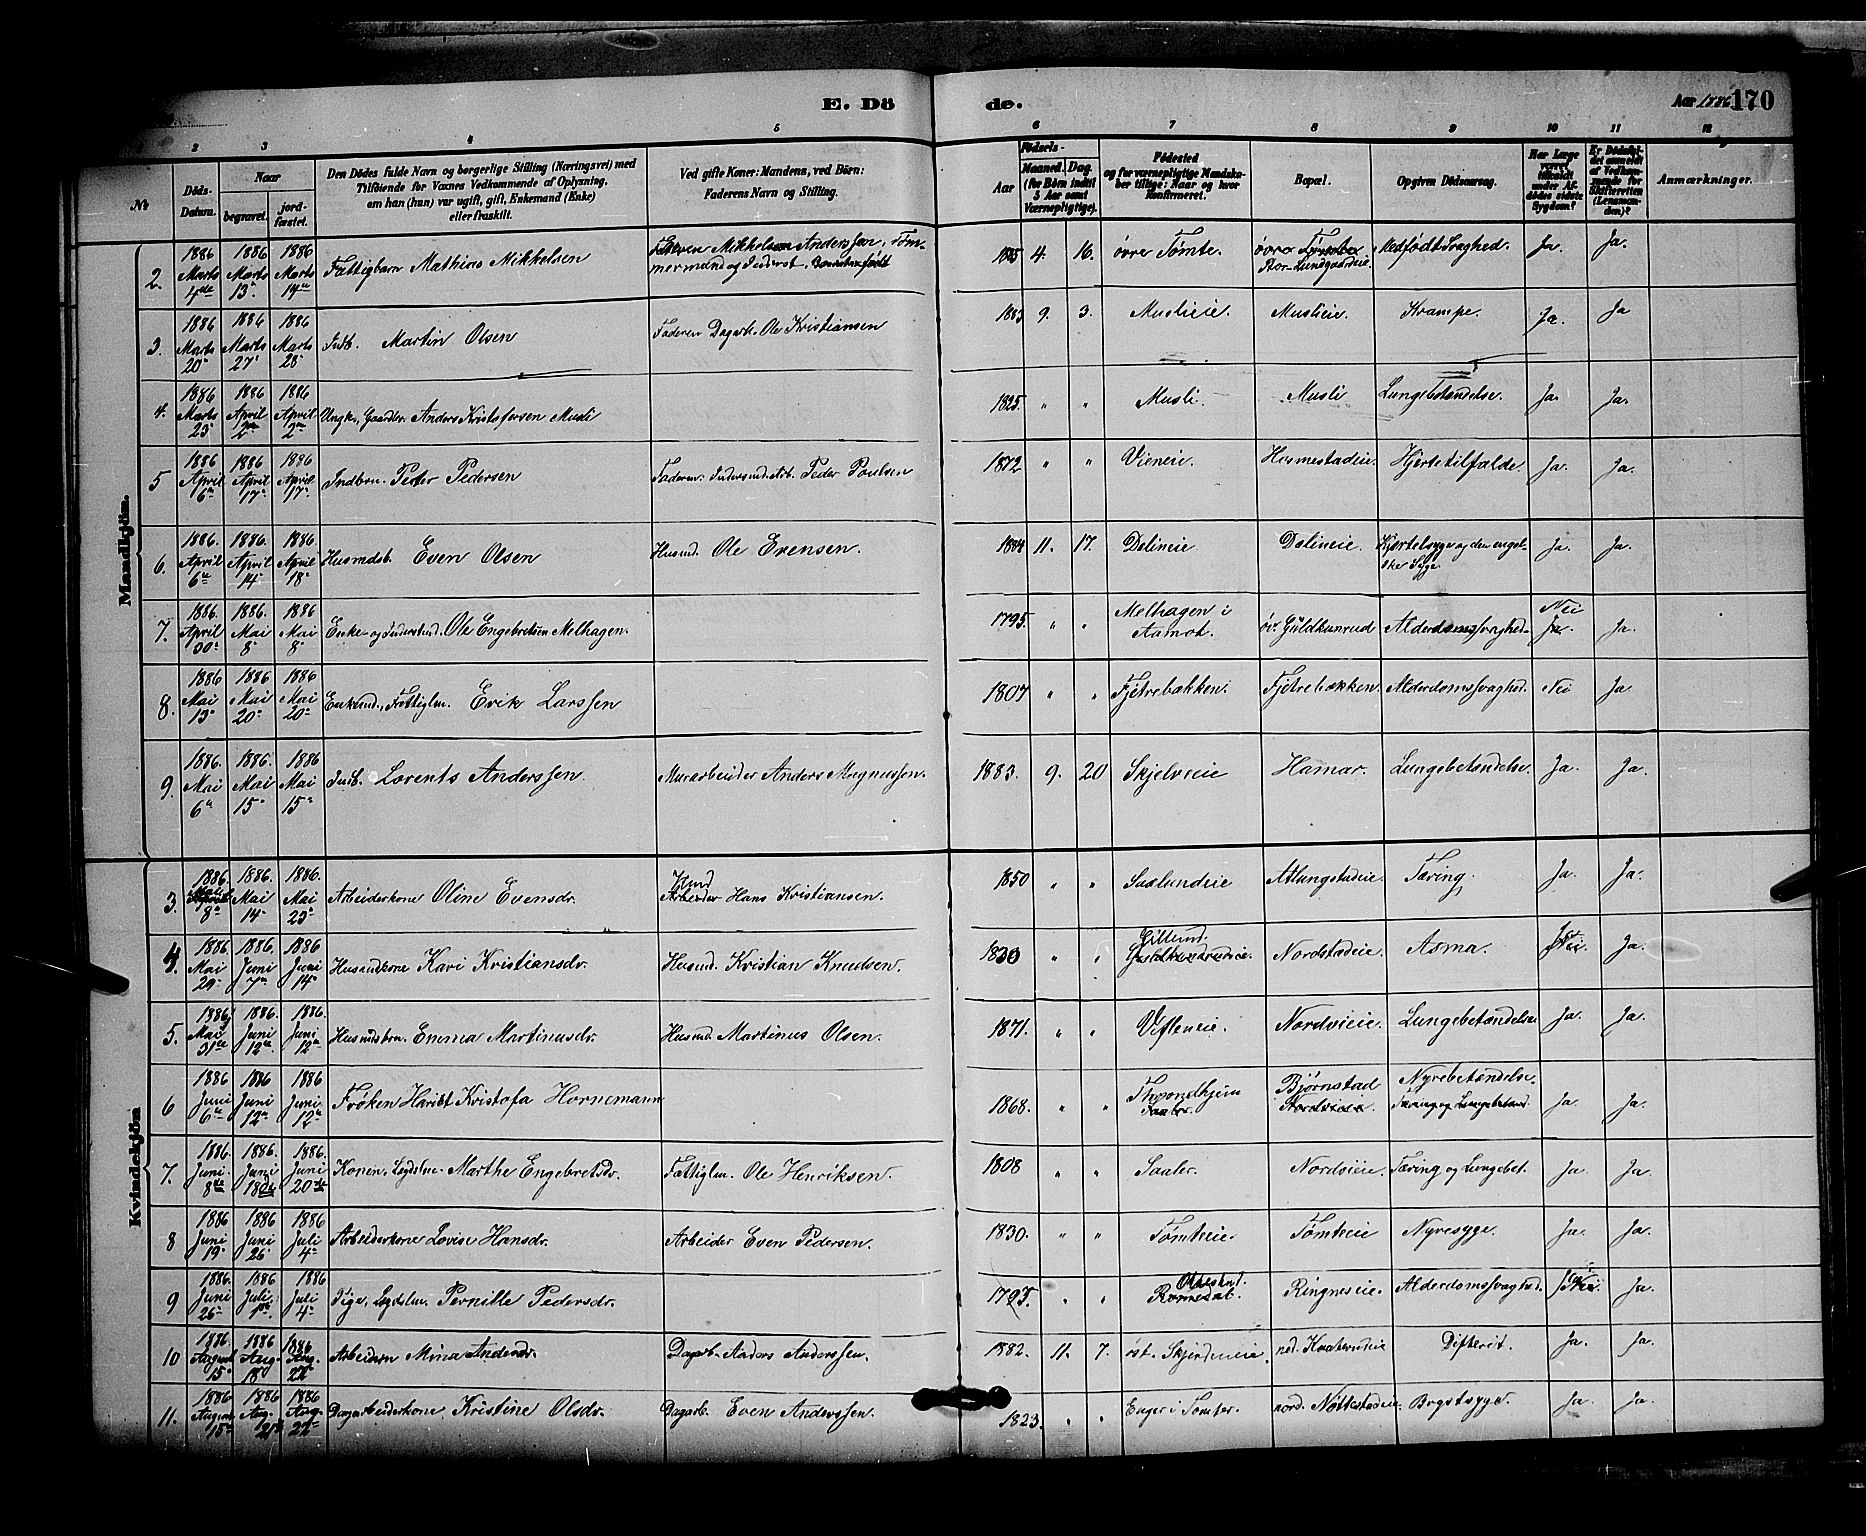 E. Döde.
Aar 1886 170
2 3 4 5 6 7 8 9 10 11 12
No
Döds-Datum.
Naar begravet. jordfæstet.
Den Dödes fulde Navn og borgerlige Stilling (Næringsvei) med
Tilföiende for Voxnes Vedkommende af Oplysning,
om han (hun) var ugift, gift, Enkemand (Enke)
eller fraskilt.
Ved gifte Koner: Mandens, ved Börn:
Faderens Navn og Stilling.
Födsels-
Aar Maaned. Dag.
(for Börn indtil
5 Aar samt
Værnepligtige).
Födested
og for værnepligtige Mandskaber tillige: Naar og hvor
Konfirmeret.
Bopæl.
Opgiven Dödsaarsag.
Har Læge været tilkaldt under Afdödes sidste Sygdom?
Er Dödsfaldet anmeldt af Vedkommende for Skifteretten (Lensmanden)?
Anmærkninger.
Mandkjön.
2. 1886 Marts 4de 1886 Marts 13. 1886 Marts 14 Fattigbarn Mathias Mikkelsen Faderen Mikkelsen Anderssen, Tømmermand og Inderst. 1885 4. 16. övre Tömte. Stor-Lundgaardeie. Medfödt Svaghed. Ja. Ja.
3. 1886 Marts 20 1886 Marts 27 1886 Marts 28 Indb. Martin Olsen Faderen Dagarb. Ole Kristiansen 1883 9. 3. Muslieie. Muslieie. Krampe. Ja. Ja
4. 1886 Marts 25 1886 April 2 1886 April 2 Ungk., Gaardbr. Anders Kristofersen Musli 1825. " " Musli. Musli Lungebetændelse. Ja. Ja.
5 1886 April 6 1886 April 17 1886 April 17 Indbrn. Peter Pedersen Faderen Indersmd. Arb. Peder Poulsen 1872 " " Vieneie. Hesmestadeie. Hjertetilfælde. Ja. Ja.
6. 1886. April 6 1886. April 14 1886 April 18 Husmdsb. Even Olsen Husmd. Ole Evensen. 1884 11. 17. Delineie Delineie. Kjertelsyge og den engelske Syge. Ja. Ja.
7. 1886. April 30 1886. Mai 8 1886 Mai 8 Enke- og Inderstmd. Ole Engebretsen Melhagen. 1795. " " Melhagen i Aamot. öv. Guldkunrud Alderdomssvaghed. Nei Ja. Ja.
8. 1886 Mai 13 1886 Mai 20 1886 Mai 20 Enkemd., Fattiglm. Erik Larssen 1807 " " Fjetrebakken. Fjetrebækken. Alderdomssvaghed. Nei Ja.
9. 1886. Mai 6 1886. Mai 15 1886 Mai 15 Indb. Lorents Anderssen. Murarbeider Anders Magnussen. 1883. 9. 20 Skjelveie Hamar. Lungebetændelse. Ja. Ja.
Kvindekjön
3. 1886. Mai 8 1886. Mai 14 1886. Mai 23 Arbeiderkone Oline Evensdr. Husmd Arbeider Hans Kristiansen. 1850 " " Saalundeie Atlungstadeie. Tæring. Ja. Ja.
4. 1886 Mai 29 1886. Juni 7 1886. Juni 14 Husmdkone Kari Kristiansdr. Husmd. Kristian Knudsen. 1830 " " Gillund. Nordstadeie. Asma. Nei Ja.
5. 1886 Mai 31te 1886. Juni 12 1886. Juni 12 Husmdsbrn. Emma Martinusdr. Husmd. Martinus Olsen. 1871. " " Vifleneie. Nordvieie. Lungebetændelse Ja. Ja.
6 1886 Juni 6 1886 Juni 12 1886. Juni 12 Fröken Hariet Kristofa Hornemann 1868. " " Throndhjem Bjørnstad Nordvieie. Nyrebetændelse. Tæring og Lungebetænd. Ja. Ja.
7. 1886. Juni 8de 1886. Juni 18de 1886. Juni 20de Konen. Lægdslm. Marthe Engebretsdr. Fattiglm. Ole Henriksen. 1808 " " Saaler. Nordvieie. Tæring og Lungebet. Ja. Ja.
8 1886 Juni 19 1886 Juni 26 1886 Juli 4 Arbeiderkone Lovise Hansdr. Arbeider Even Pedersen. 1830. " " Tömteeie. Tömteeie Nyresyge. Ja. Ja.
9 1886. Juni 26 1886 Juli 1ste 1886 Juli 4 Pige. Lægdslm. Pernille Pedersdr. 1795. " " Ottestad. Romedal. Ringneseie. Alderdomssvaghed. Nei. Ja.
10 1886. August 15 1886 Aug. 18 1886 Aug. 22 Arbeiderbrn Mina Andersdr. Dagarb. Anders Anderssen. 1882. 11. 7. öst. Skjerdeneie. ned. Kvaterudeie Difterit. Ja. Ja.
11. 1886 August 15 1886 Aug. 21 1886 Aug. 22 Dagarbeiderkone Kristine Olsdr. Dagarb. Even Anderssen. 1823. " " Enger i Tomter. nord. Nöttestadeie. Brystsyge. Ja. Ja.